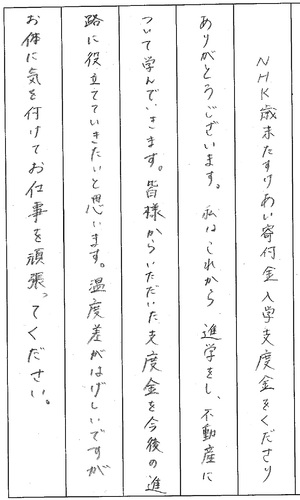 NHK歳末たすけあい寄付金入学支度金をくださり
ありがとうございます。私はこれから進学をし、不動産に
ついて学んでいきます。皆様からいただいた支度金を今後の進
路に役立てていきたいと思います。温度差がはげしいですが
お体に気を付けてお仕事を頑張ってください。